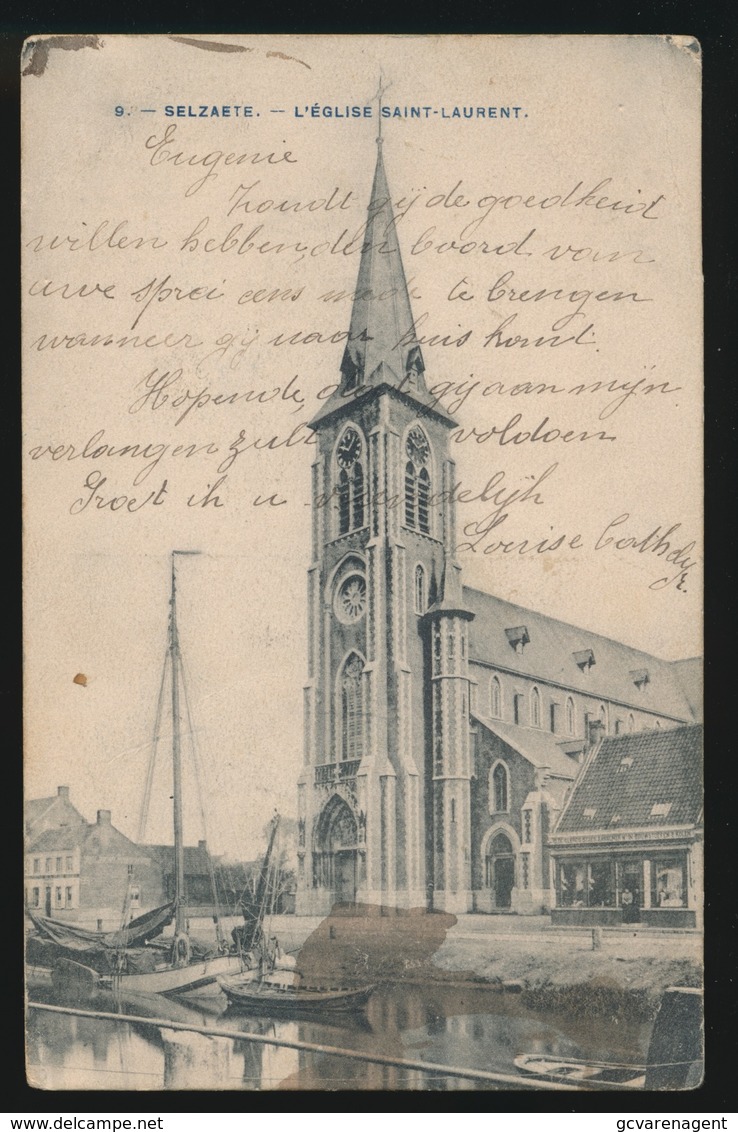 9. — SELZAETE. — L'ÉGLISE SAINT-LAURENT.
Eugenie
Zoudt gij de goedheid
willen hebben, den boord van
uwe sprei eens mede te brengen
wanneer gij naar huis komt.
Hopende, dat gij aan mijn
verlangen zult voldoen
Groet ik u vriendelijk
Louise
© gcvarenagent